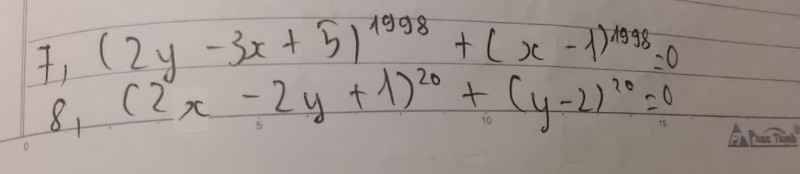 7, (2y - 3x + 5)^1998 + (x - 1)^1998 = 0
8, (2x - 2y + 1)^20 + (y - 2)^20 = 0
0 5 10 15